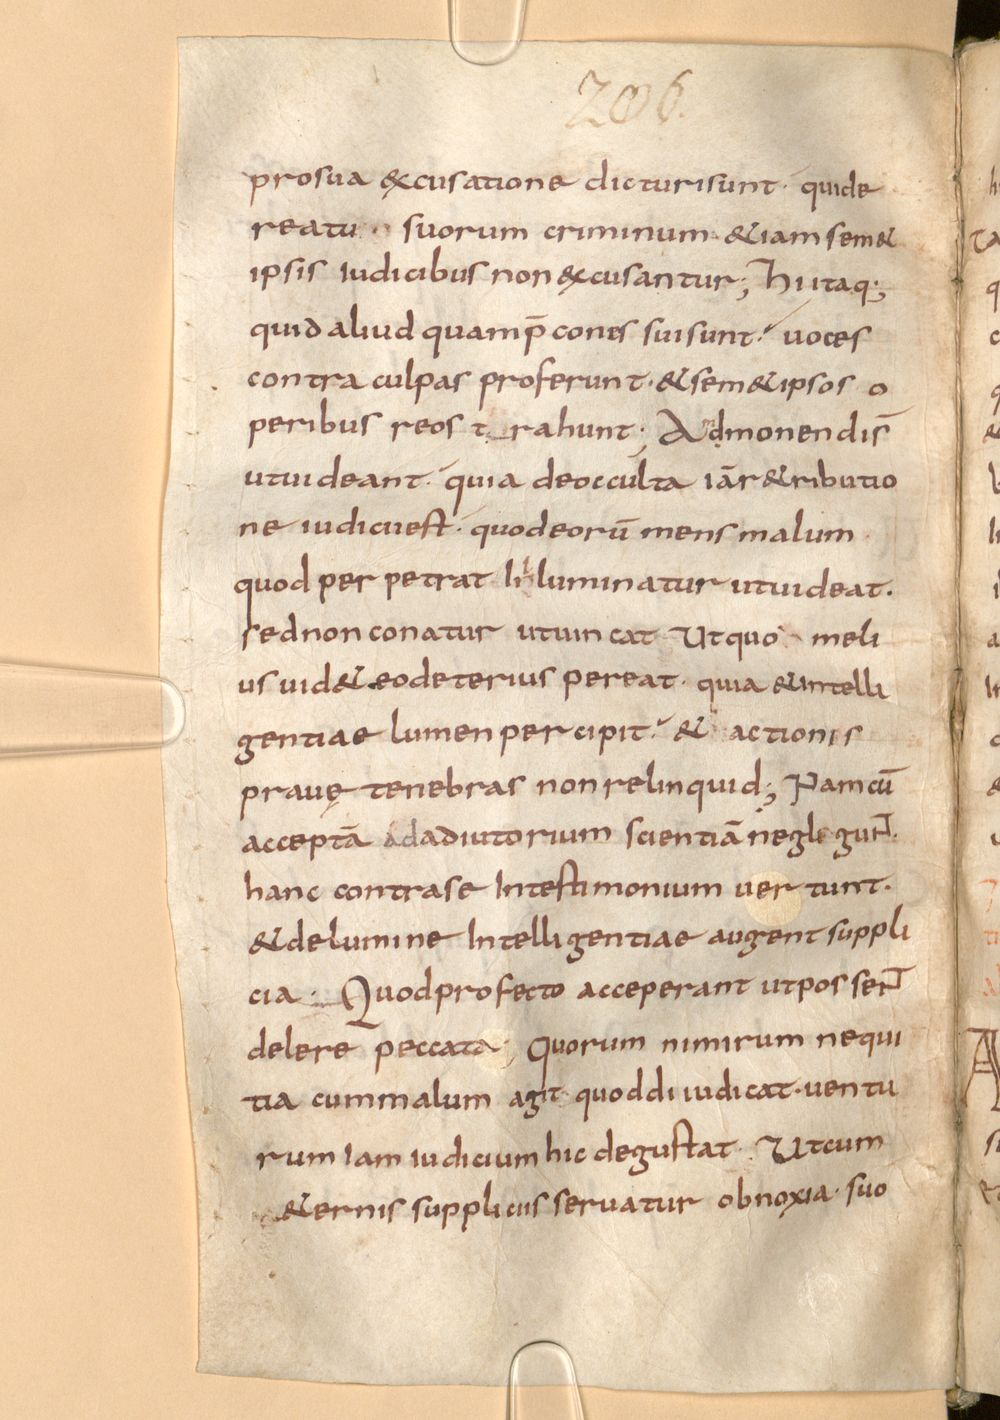 206.
prosua &cusatione dicturisunt· quide
reatu suorum criminum &iam sem&
ipsis iudicibus non excusantur; hiitaq;
quid aliud quam p̄cones suisunt· uoces
contra culpas proferunt· &sem&ipsos o
peribus reos trahunt; Admonendi s̄
utuideant· quia deocculta iā r&ributio
ne iudiciiest· quodeorū mens malum
quod perpetrat Inluminatur utuideat·
sednonconatur utuincat Utquo meli
us uid& eodeterius pereat· quia &intelli
gentiae lumen percipit· & actionis
prauę tenebras nonrelinquid; Nam cū
acceptā adadiutorium scientiā neglegunt·
hanc contrase Intestimonium uertunt·
&delumine Intelligentiae augent suppli
cia· Quodprofecto acceperant utpossent
delere peccata; Quorum nimirum nequi
tia cummalum agit quoddiiudicat· uentu
rum iam iudicium hic degustat· Utcum
&ernis suppliciis seruatur obnoxia· suo